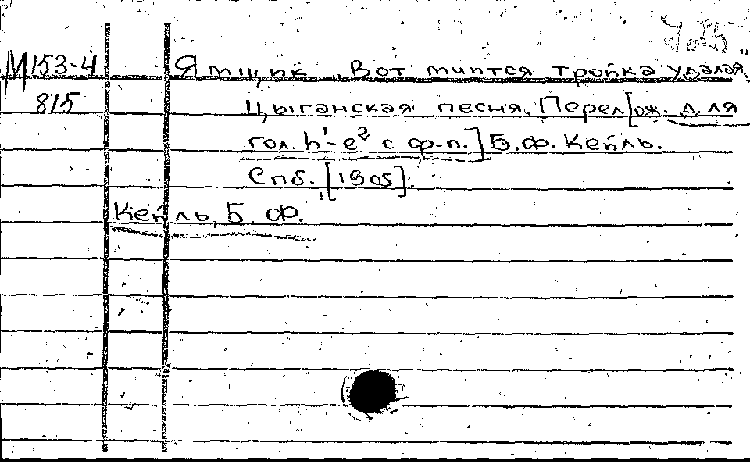 М153-4 Ямщик „Вот мчится тройка удалая"
815 Цыганская песня. Перел[ож. для
гол. h¹-e² с ф-п.] Б.Ф. Кейль.
Спб. [1905].
Кейль, Б. Ф.